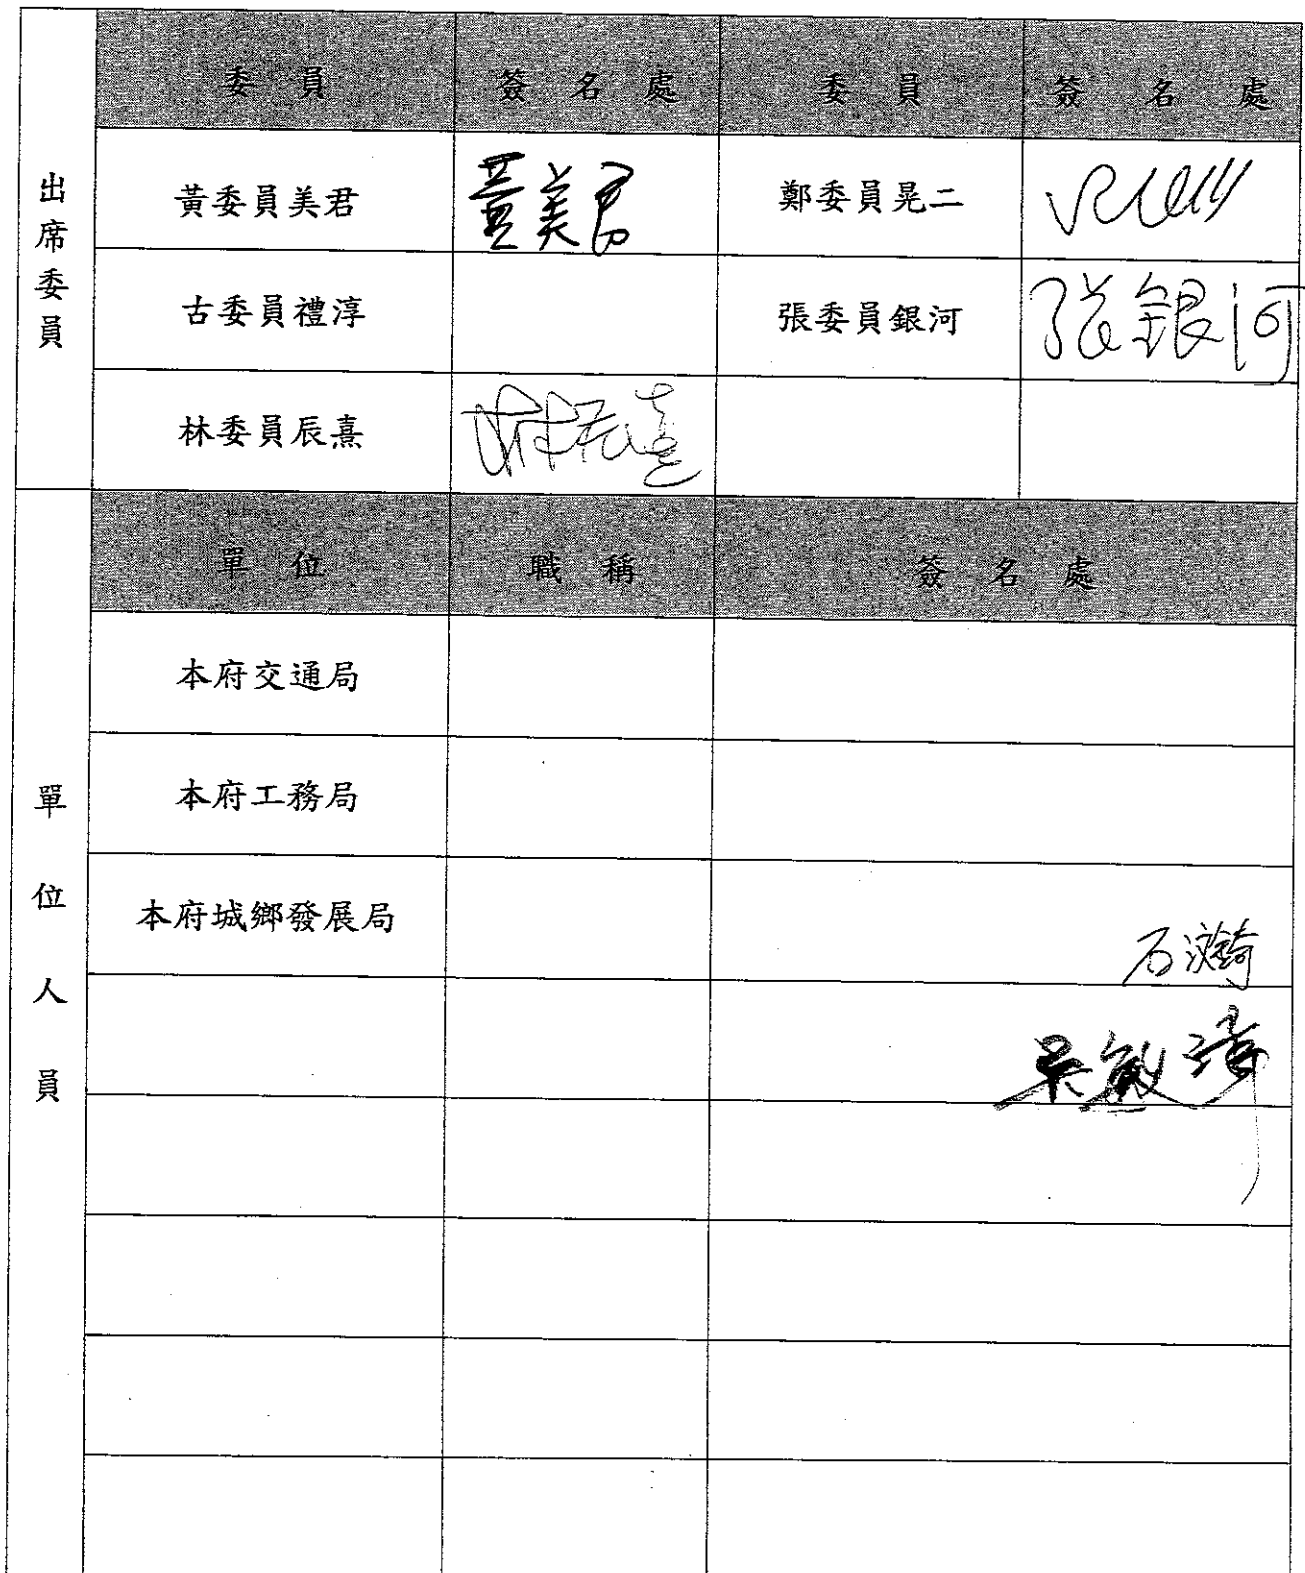 出席委員
委員 簽名處 委員 簽名處
黃委員美君 黃美君 鄭委員晃二
古委員禮淳 張委員銀河 張銀河
林委員辰熹 林辰熹
單位人員
單位 職稱 簽名處
本府交通局
本府工務局
本府城鄉發展局